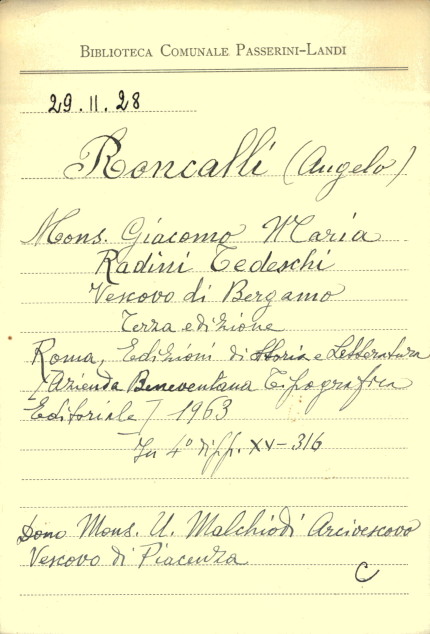 BIBLIOTECA COMUNALE PASSERINI-LANDI
29.11.28
Roncalli (Angelo)
Mons. Giacomo Maria
Radini Tedeschi
Vescovo di Bergamo
Terza edizione
Roma, Edizioni di Storia e Letteratura
[Azienda Beneventana Tipografica
Editoriale] 1963
In 4° di pp. XV-316
Dono Mons. U. Malchiodi Arcivescovo
Vescovo di Piacenza
C